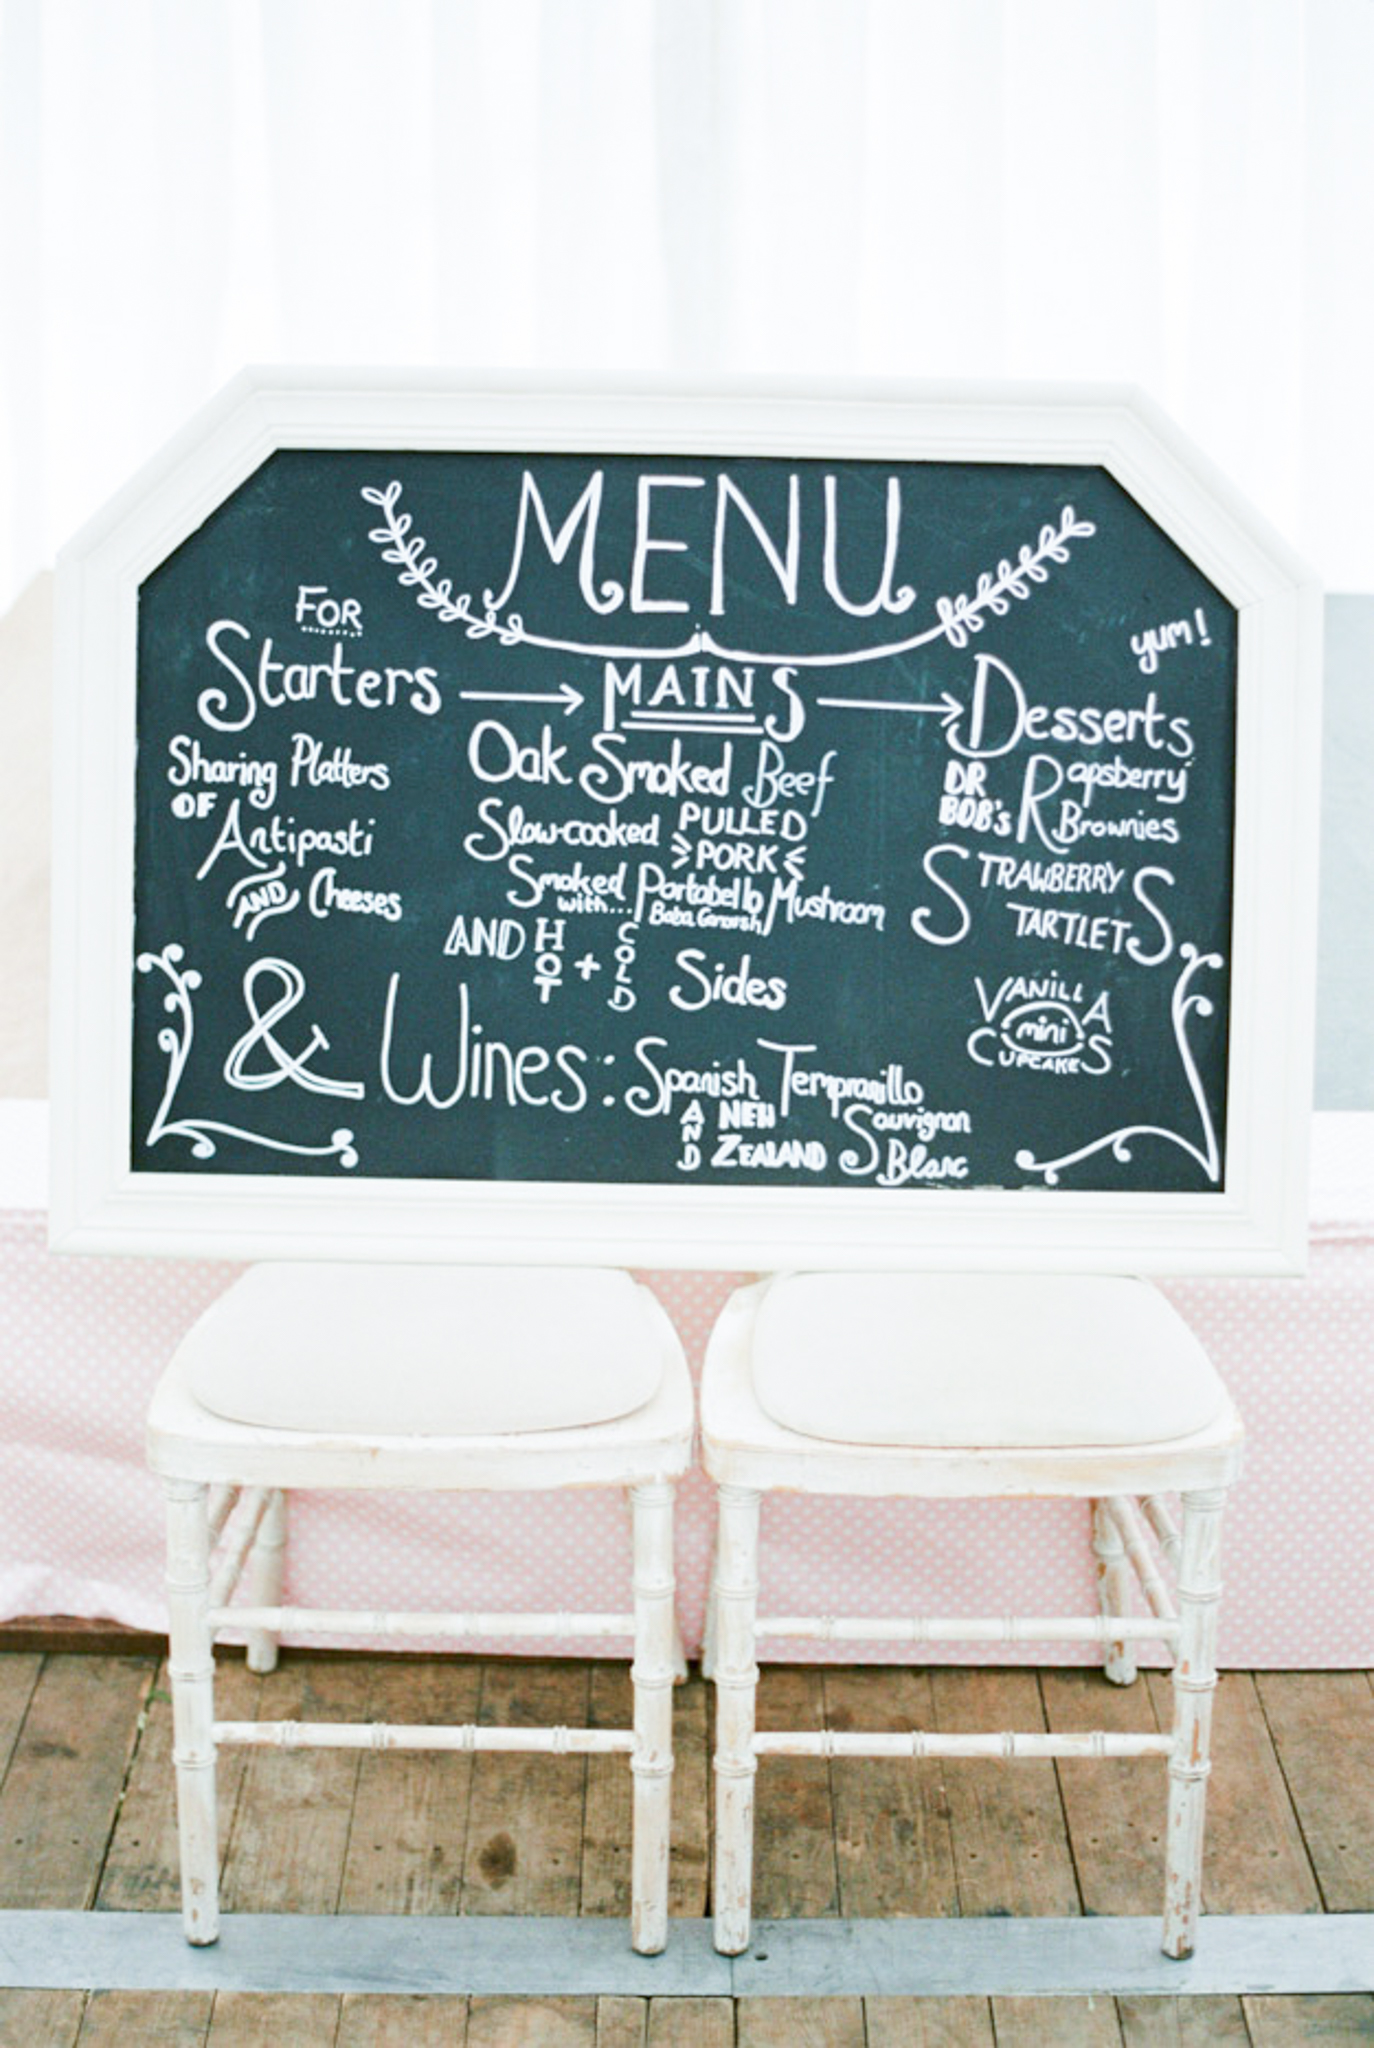 MENU
FOR
Starters → MAINS → Desserts
yum!
Sharing Platters
OF
Antipasti
AND Cheeses
Oak Smoked Beef
Slow-cooked PULLED
PORK
Smoked Portabello Mushroom
with... Baba Ganoush
AND HOT + COLD Sides
DR BOB's Rapsberry
Brownies
STRAWBERRY
TARTLETS
VANILLA
mini
CUPCAKES
& Wines: Spanish Tempranillo
AND NEW Sauvignon
ZEALAND Blanc